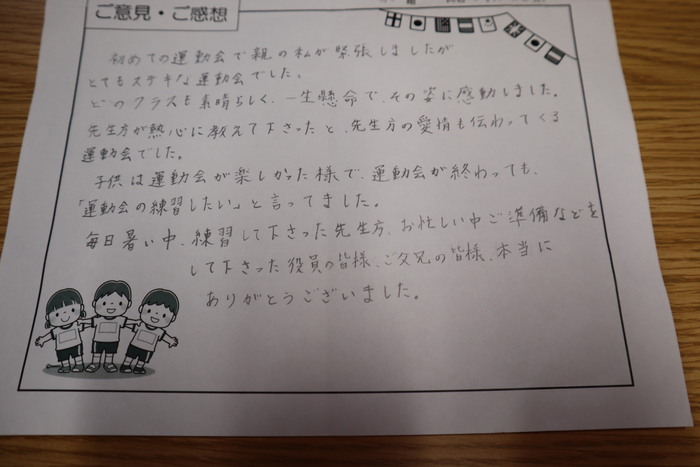 ご意見・ご感想
初めての運動会で親の私が緊張しましたが
とてもステキな運動会でした。
どのクラスも素晴らしく、一生懸命で、その姿に感動しました。
先生方が熱心に教えて下さったと、先生方の愛情も伝わってくる
運動会でした。
子供は運動会が楽しかった様で、運動会が終わっても、
「運動会の練習したい」と言ってました。
毎日暑い中、練習して下さった先生方、お忙しい中ご準備などを
して下さった役員の皆様、ご父兄の皆様、本当に
ありがとうございました。